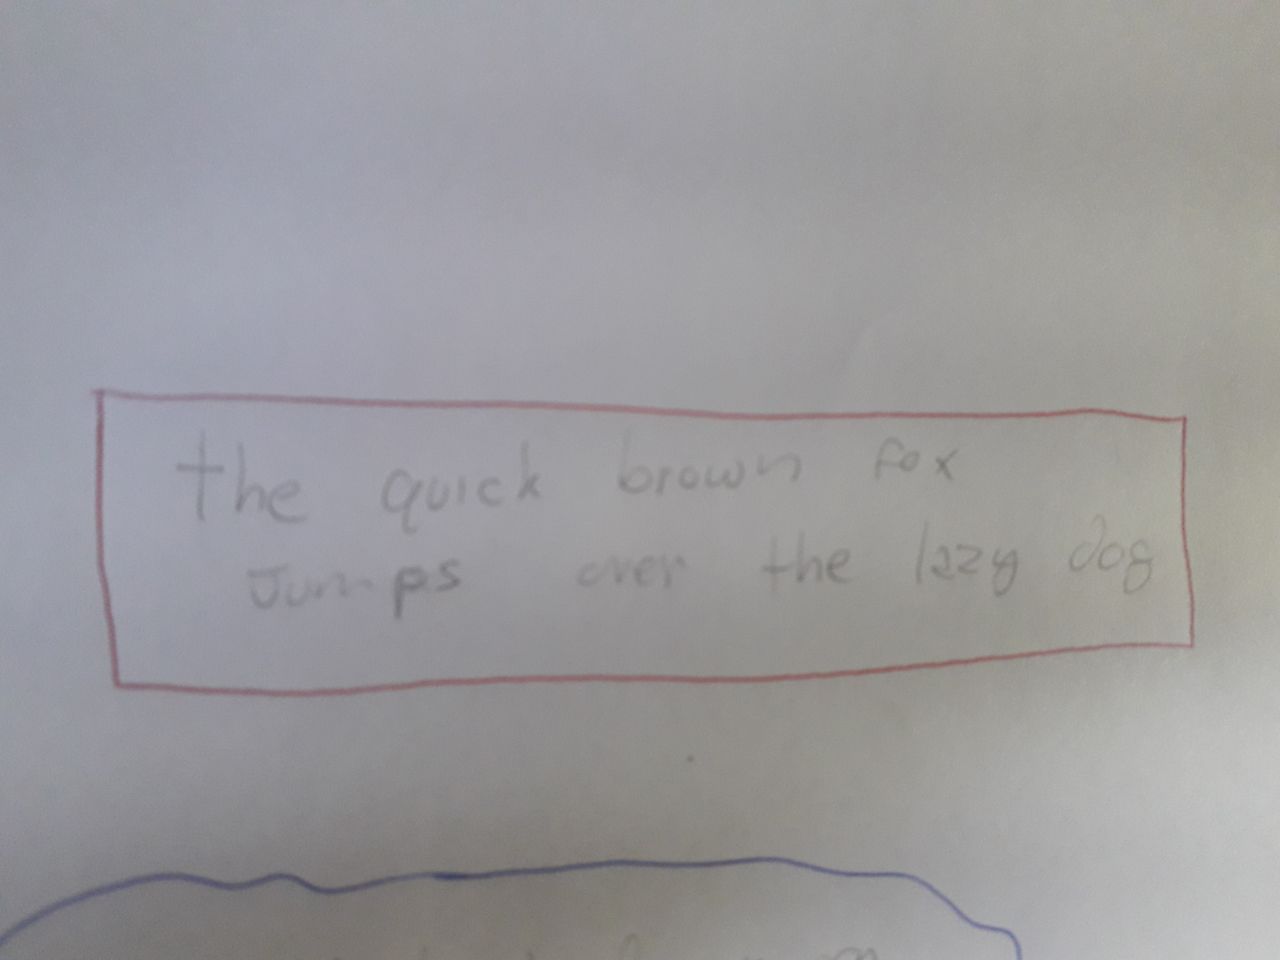 the quick brown fox
Jumps over the lazy dog